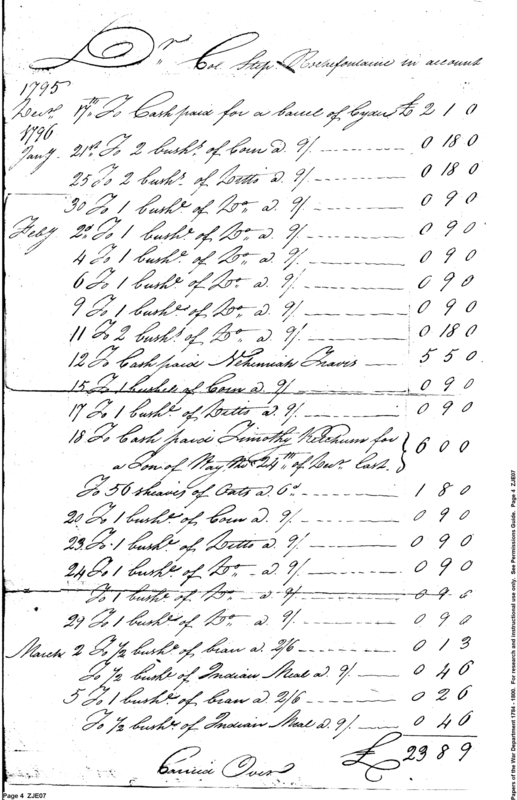 Dr Col Step. Rochefontaine in account
1795
Decr. 17th To Cash paid for a barrel of Cyder £ 2 1 0
1796
Jany. 21st To 2 bushs. of Corn a 9/ 0 18 0
25 To 2 bushs. of Ditto a 9/ 0 18 0
30 To 1 bushl. of Do. a 9/ 0 9 0
Feby 2d To 1 bushl. of Do. a 9/ 0 9 0
4 To 1 bushl. of Do. a 9/ 0 9 0
6 To 1 bushl. of Do. a 9/ 0 9 0
9 To 1 bushl. of Do. a 9/ 0 9 0
11 To 2 bushs. of Do. a 9/ 0 18 0
12 To Cash paid Nehemiah Travis 5 5 0
15 To 1 bushl. of Corn a 9/ 0 9 0
17 To 1 bushl. of Ditto a 9/ 0 9 0
18 To Cash paid Timothy Ketchum for
a Ton of Hay the 24th of Decr. last } 6 0 0
To 56 sheaves of Oats a 6d 1 8 0
20 To 1 bushl. of Corn a 9/ 0 9 0
23 To 1 bushl. of Ditto a 9/ 0 9 0
24 To 1 bushl. of Do. a 9/ 0 9 0
To 1 bushl. of Do. a 9/ 0 9 0
29 To 1 bushl. of Do. a 9/ 0 9 0
March 2 To 1/2 bushl. of bran a 2/6 0 1 3
To 1/2 bushl. of Indian Meal a 9/ 0 4 6
5 To 1 bushl. of bran a 2/6 0 2 6
To 1/2 bushl. of Indian Meal a 9/ 0 4 6
£ 23 8 9
Carried Over
Page 4 ZJE07
Papers of the War Department 1784 - 1800. For research and instructional use only. See Permissions Guide. Page 4 ZJE07